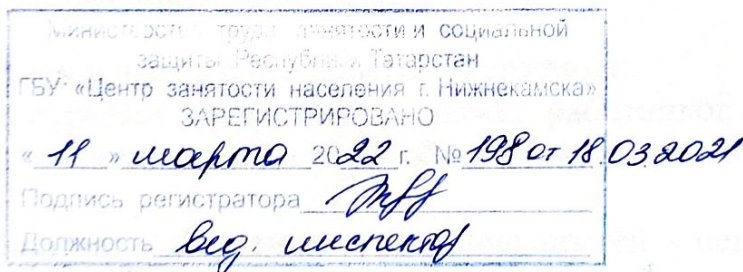 Министерство труда, занятости и социальной
защиты Республики Татарстан
ГБУ «Центр занятости населения г. Нижнекамска»
ЗАРЕГИСТРИРОВАНО
« 11 » марта 2022 г. № 198 от 18.03.2021
Подпись регистратора
Должность вед. инспектор